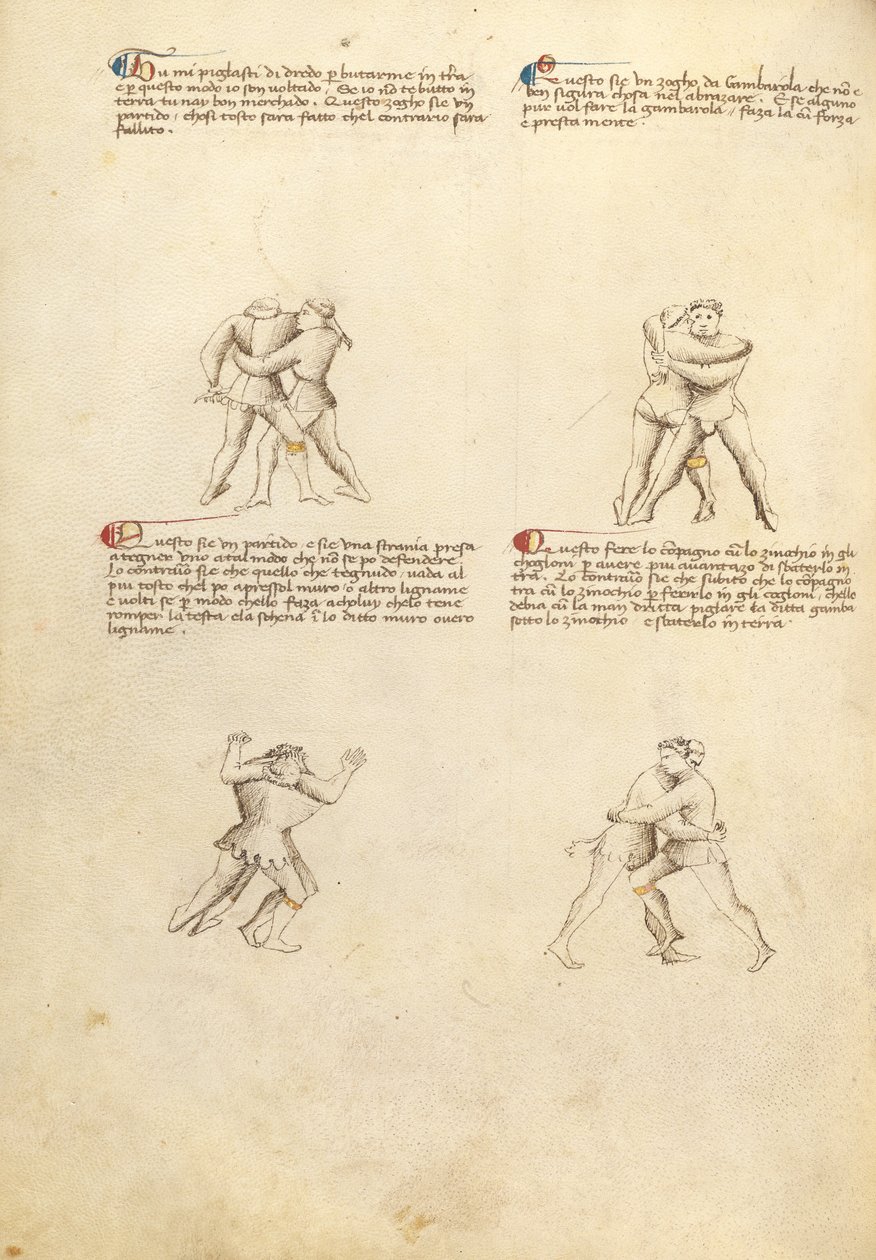 Tu mi piglasti di dredo p butarme in tr̄a
e p questo modo io son voltado . Se io nō te butto in
terra tu nay bon merchado . Questo zogho sie vn
partido / chosi tosto sara fatto chel contrario sara
fallito .
Questo sie vn zogho da Gambarola che nō e
ben sigura chosa nel abrazare . E se alguno
pur vol fare la gambarola // faza la cū forza
e presta mente .
Questo sie vn partido / e sie vna strania presa
a tegner uno a tal modo che nō se po defendere .
Lo contrauō sie che quello che tegnudo / vada al
piu tosto chel po apressol muro / o altro ligname
e volti se p modo chello faza achvluy chelo tene
romper la testa / ela schena ī lo ditto muro overo
ligname .
Questo fere lo cōpagno cū lo zinochio in gli
choglioni p avere piu avantazo di sbaterlo in
tr̄a . Lo contrauō sie che subito che lo cōpagno
tra cū lo zinochio p ferirlo in gli coglioni / chello
debia cū la man dritta piglare la ditta gamba
sotto lo zinochio / e sbaterlo in terra .